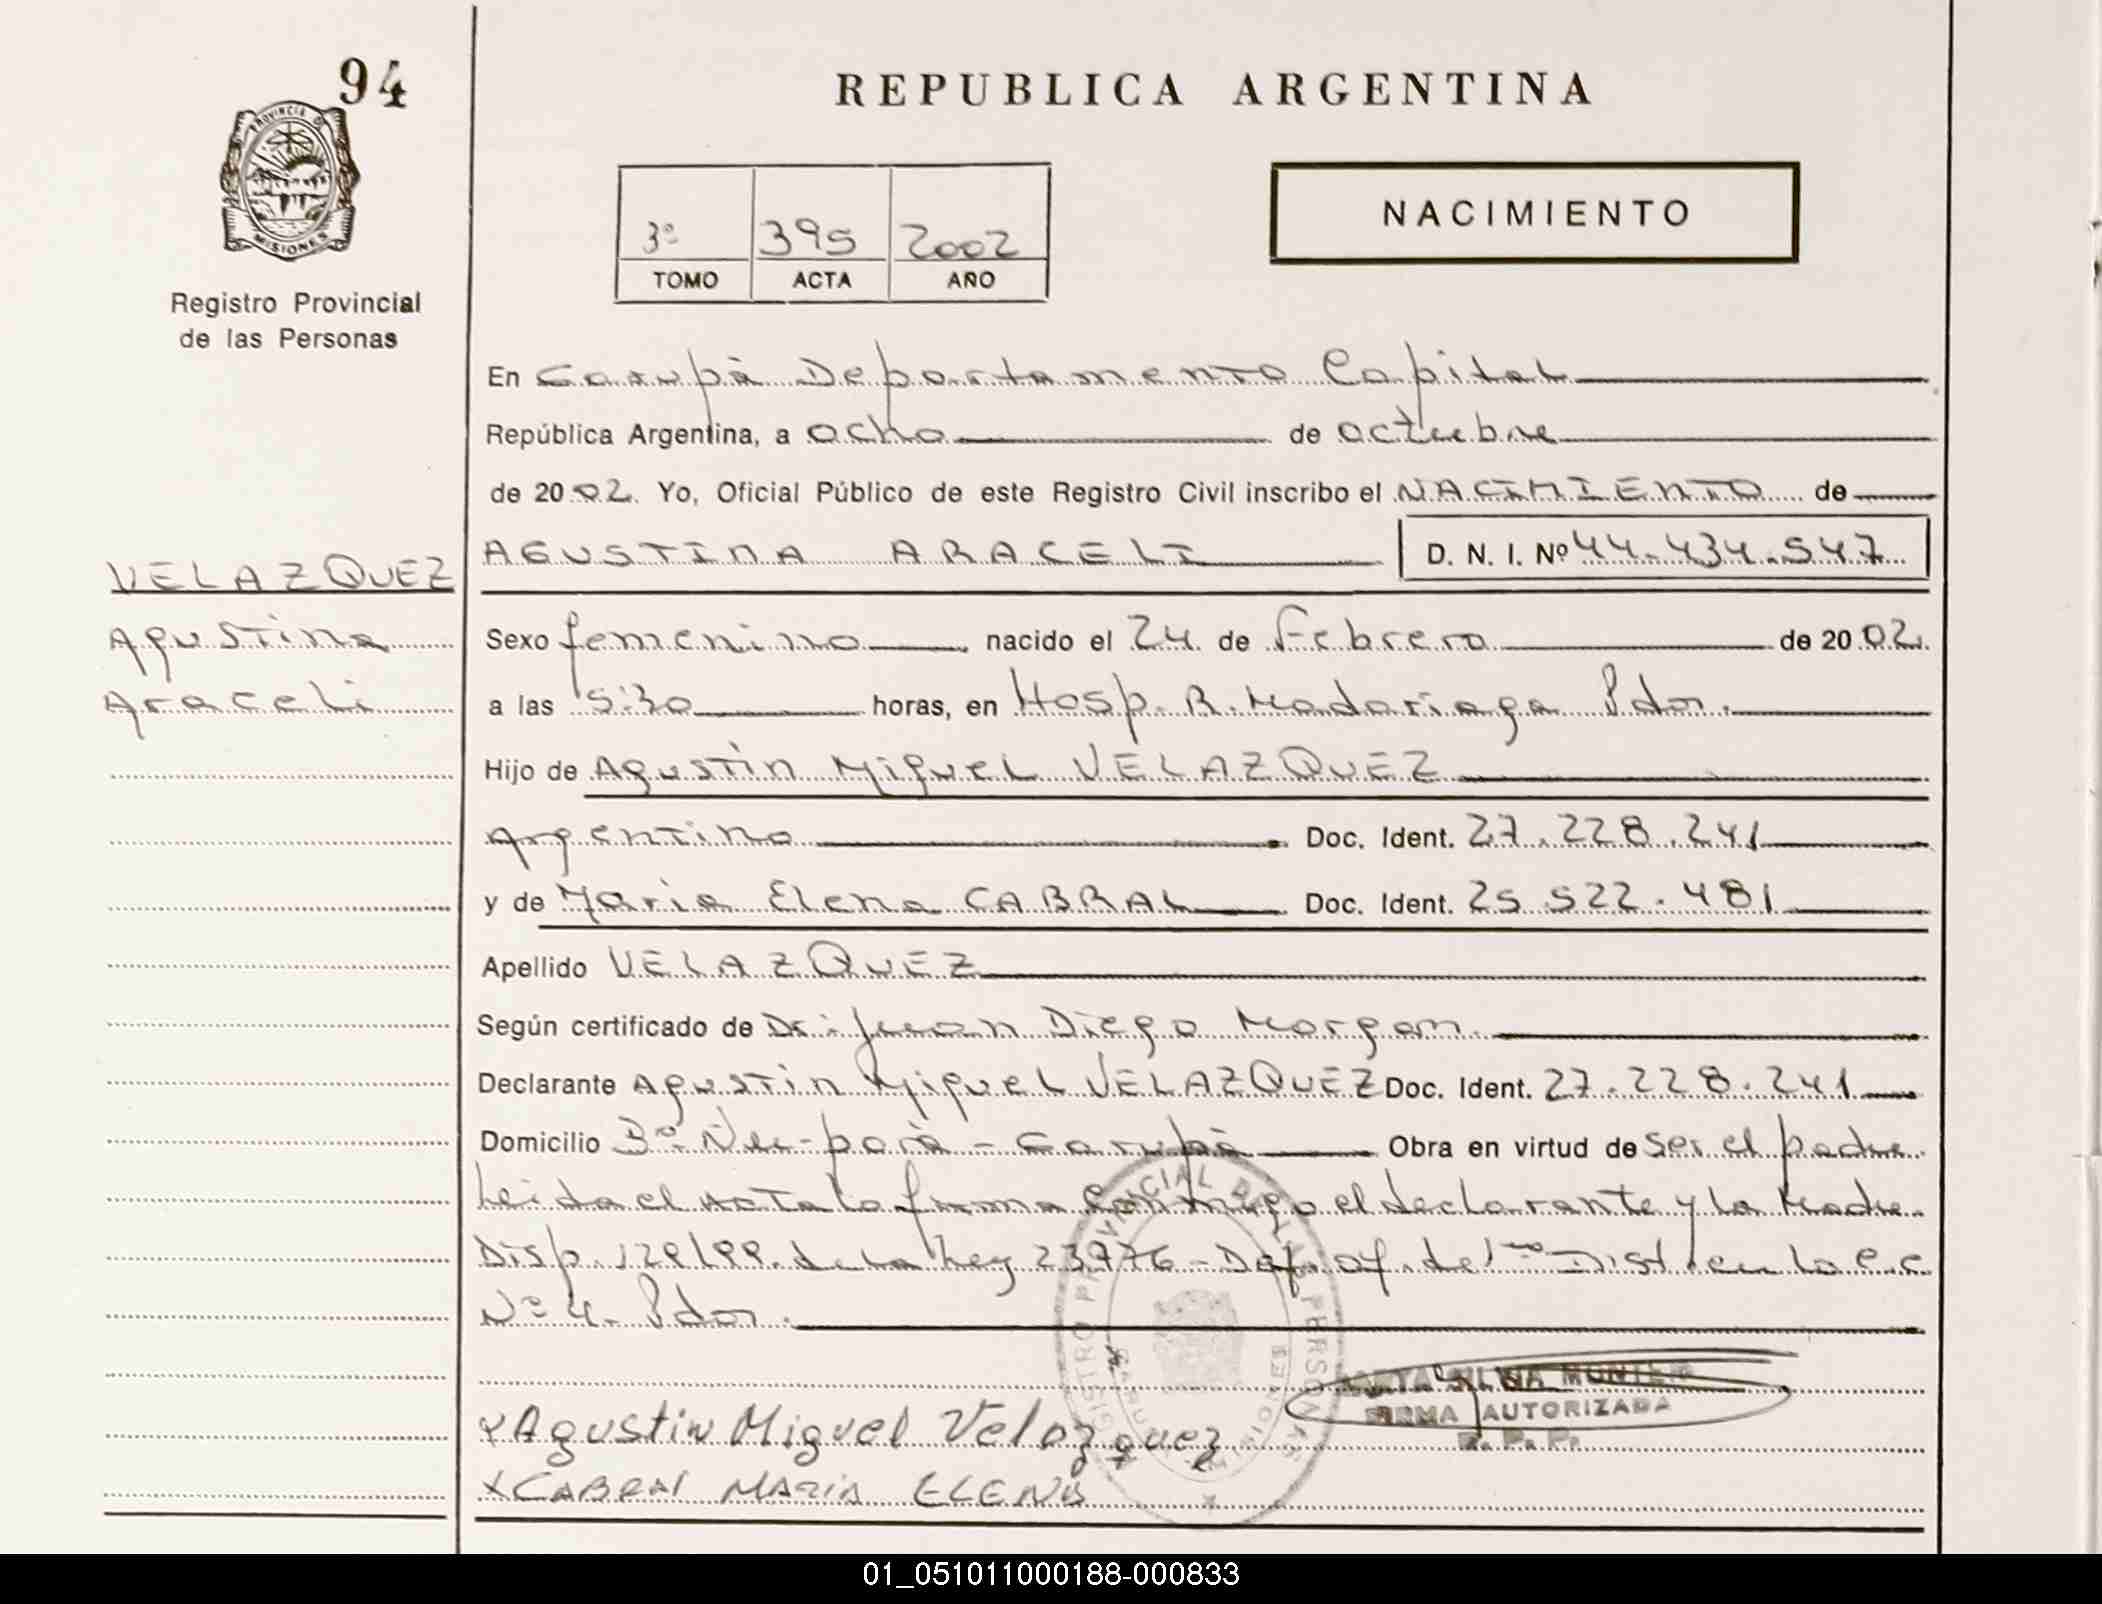 94
REPUBLICA ARGENTINA
PROVINCIA D
MISIONES
Registro Provincial
de las Personas
3º 395 2002
TOMO ACTA AÑO
NACIMIENTO
En Garupà Departamento Capital
República Argentina, a ocho de octubre
de 2002. Yo, Oficial Público de este Registro Civil inscribo el NACIMIENTO de
AGUSTINA ARACELI D. N. I. Nº 44.434.547
VELAZQUEZ
Agustina
Araceli
Sexo femenino nacido el 24 de Febrero de 2002.
a las 5:30 horas, en Hosp. R. Madariaga Pdas.
Hijo de Agustìn Miguel VELAZQUEZ
Argentino Doc. Ident. 27.228.241
y de Maria Elena CABRAL Doc. Ident. 25.522.481
Apellido VELAZQUEZ
Según certificado de Dr: Juan Diego Morgan
Declarante Agustìn Miguel VELAZQUEZ Doc. Ident. 27.228.241
Domicilio Bº Ñu-porà - Garupà Obra en virtud de ser el padre.
Leida el Acta la firma conmigo el declarante y la Madre.
Disp. 129/99. de la Ley 23776 - Def. of. del Dist en la
Nº 4. Pdas.
REGISTRO PROVINCIAL DE LAS PERSONAS
MISIONES
FIRMA AUTORIZADA
R. P. P.
x Agustin Miguel Velazquez
x CABRAL MARIA ELENA
01_051011000188-000833